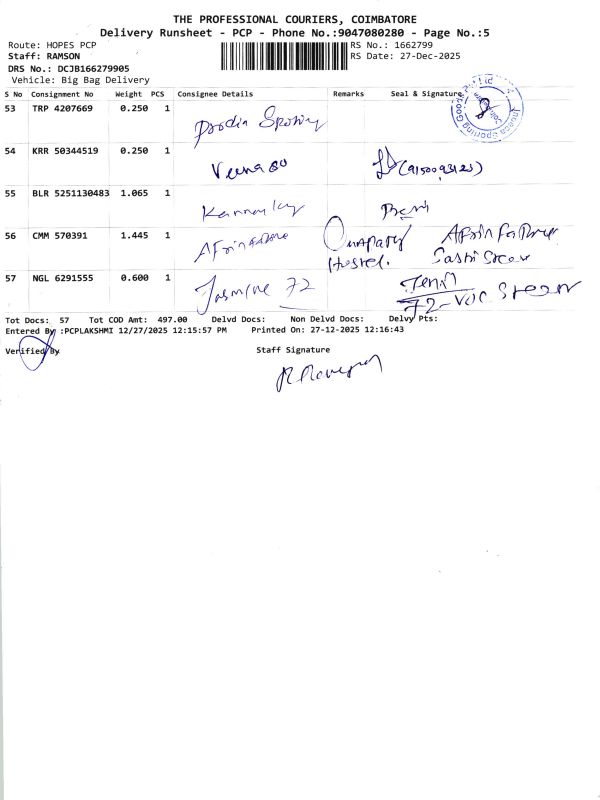 THE PROFESSIONAL COURIERS, COIMBATORE
Delivery Runsheet - PCP - Phone No.:9047080280 - Page No.:5
Route: HOPES PCP
RS No.: 1662799
Staff: RAMSON
RS Date: 27-Dec-2025
DRS No.: DCJB166279905
Vehicle: Big Bag Delivery
S No Consignment No Weight PCS Consignee Details Remarks Seal & Signature
53 TRP 4207669 0.250 1
54 KRR 50344519 0.250 1
55 BLR 5251130483 1.065 1
56 CMM 570391 1.445 1
Hostel.
57 NGL 6291555 0.600 1 Jasmine 72
Tot Docs: 57 Tot COD Amt: 497.00 Delvd Docs: Non Delvd Docs: Delvy Pts:
Entered By :PCPLAKSHMI 12/27/2025 12:15:57 PM Printed On: 27-12-2025 12:16:43
Verified By
Staff Signature